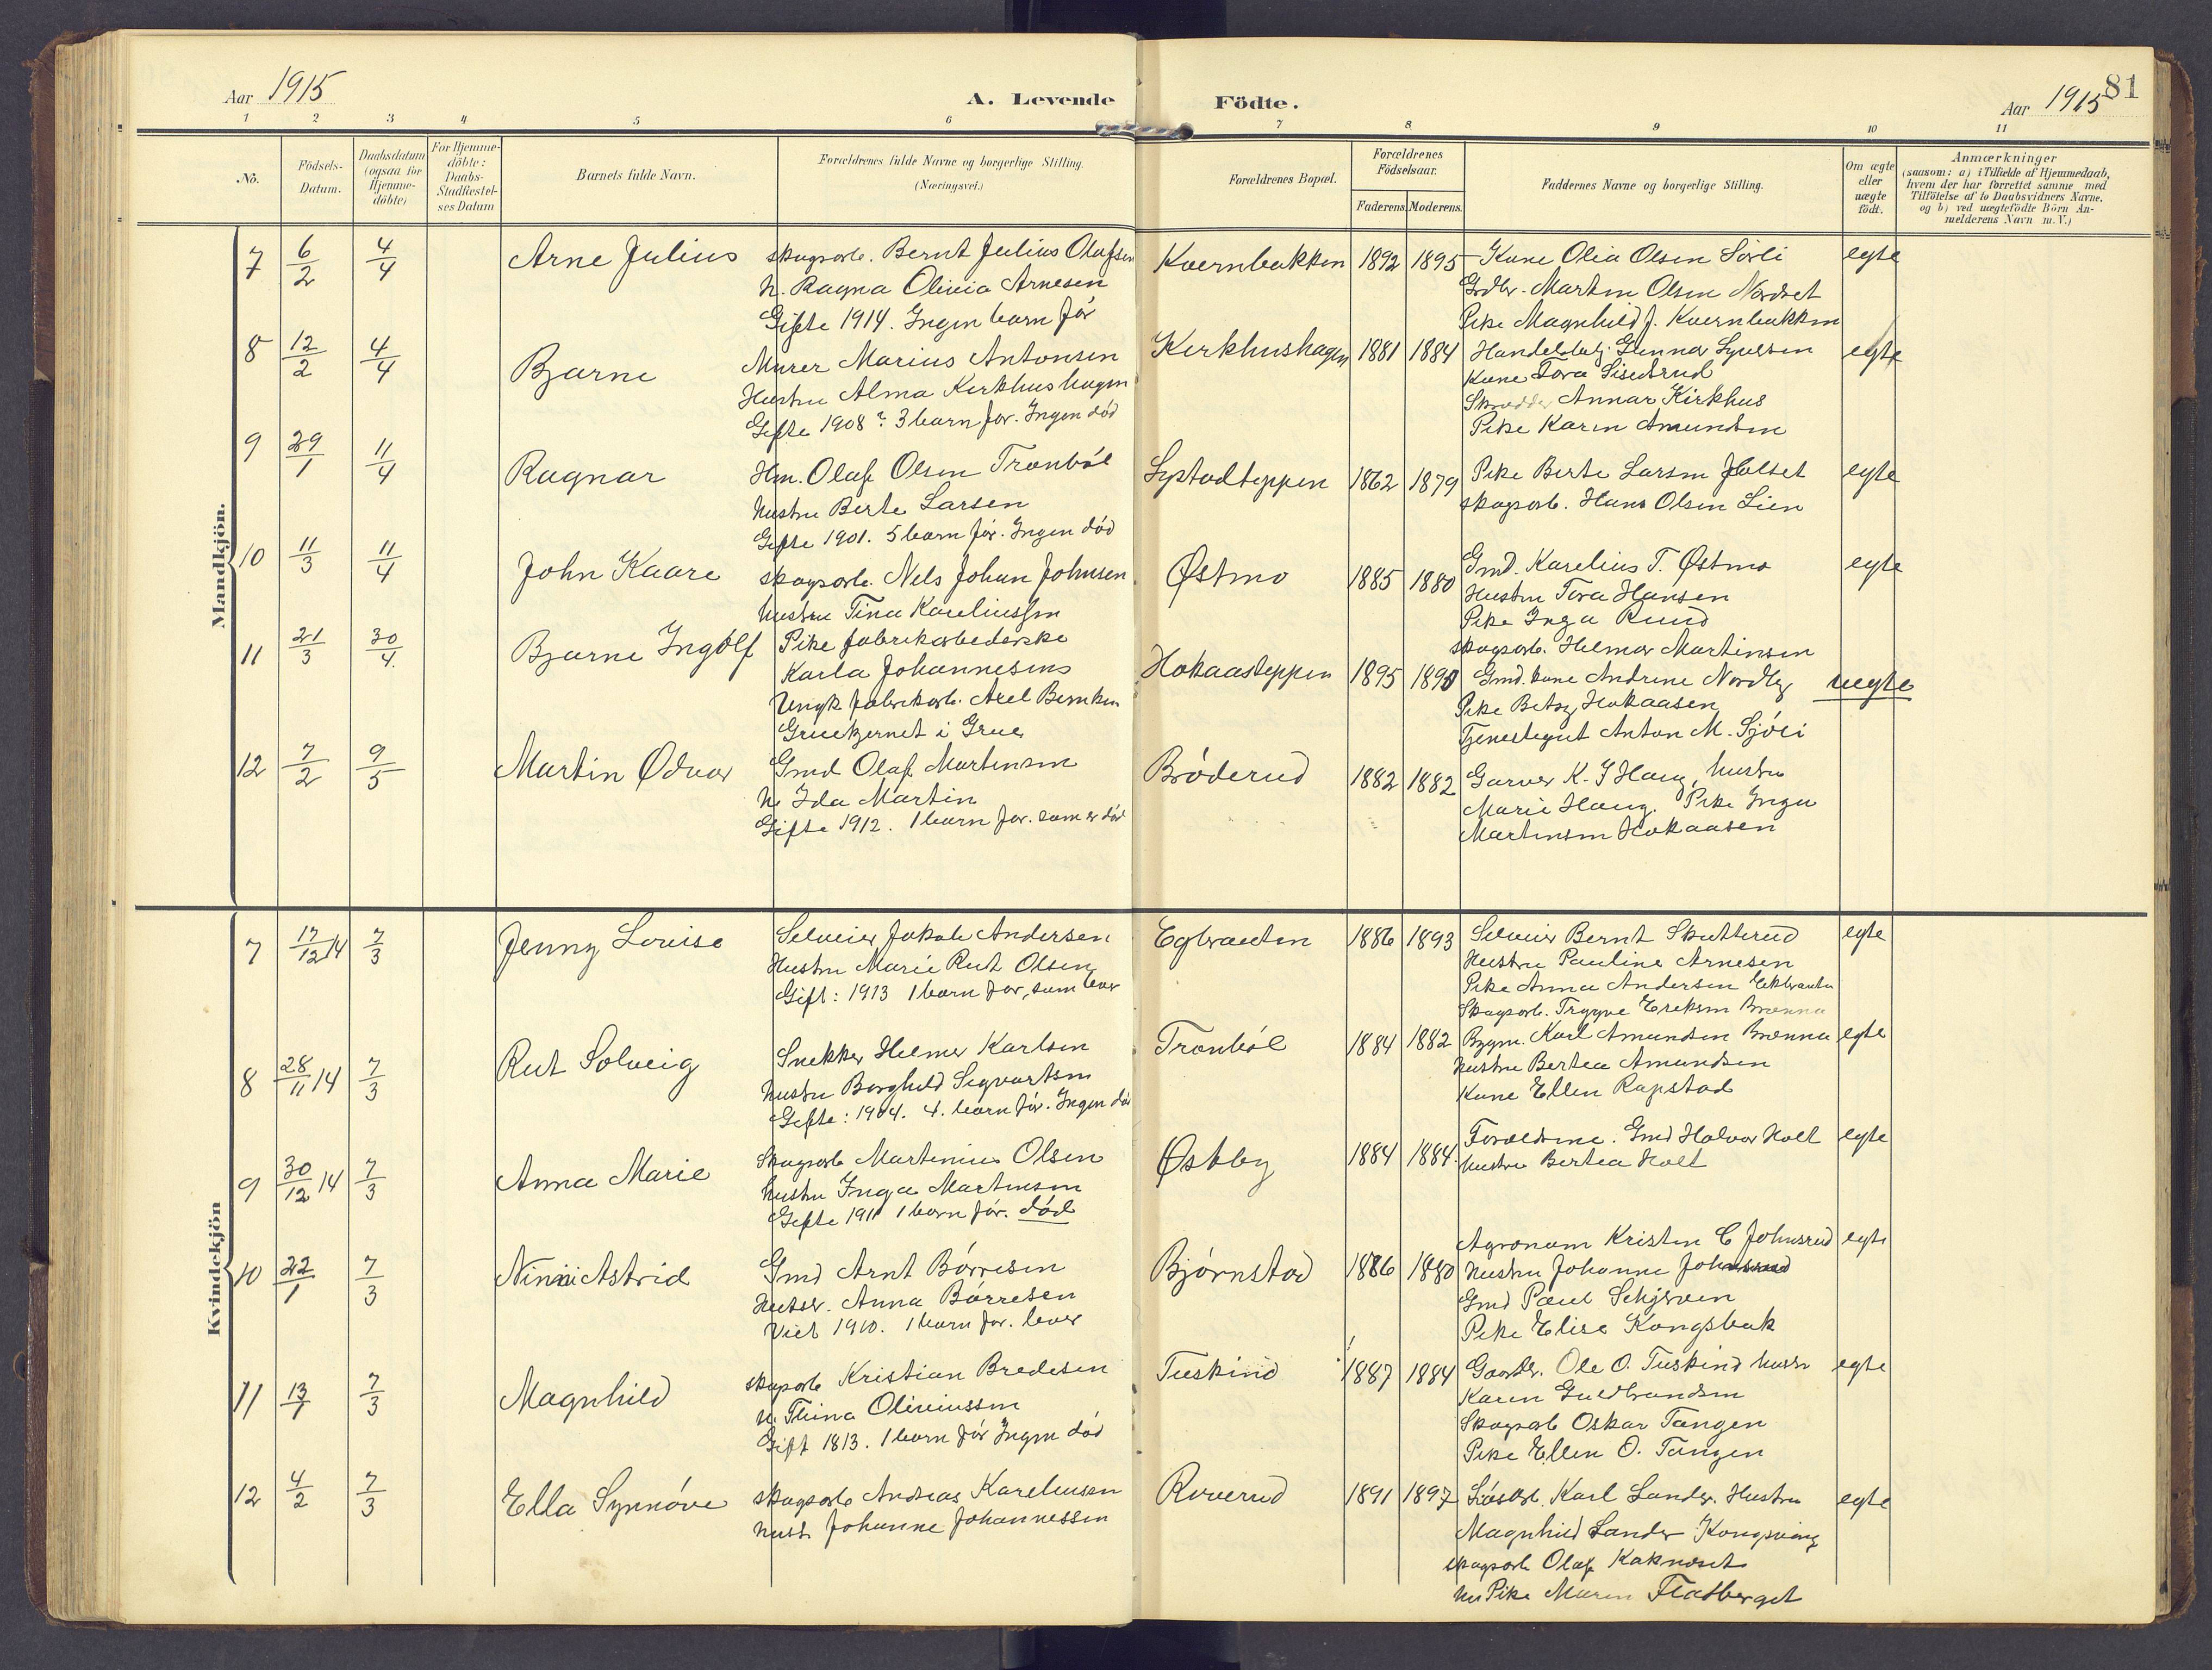 Aar 1915
A. Levende
Födte.
Aar 1915
81
1 2 3 4 5 6 7 8 9 10 11
No.
Födsels-
Datum.
Daabsdatum
(ogsaa for
Hjemme-
döbte)
For Hjemme-
döbte:
Daabs-
Stadfæstel-
ses Datum
Barnets fulde Navn.
Forældrenes fulde Navne og borgerlige Stilling.
(Næringsvei.)
Forældrenes Bopæl.
Forældrenes
Födselsaar.
Faderens. Moderens.
Faddernes Navne og borgerlige Stilling.
Om ægte
eller
uægte
födt.
Anmærkninger
(saasom: a) i Tilfælde af Hjemmedaab,
hvem der har forrettet samme med
Tilföielse af to Daabsvidners Navne,
og b) ved uægtefödte Börn An-
melderens Navn m. V.)
Mandkjön.
7 6/2 4/4 Arne Julius
skogsarb. Bernt Julius Olafsen
h. Ragna Olivia Arnesen
Gifte 1914. Ingen barn før
Kvernbakken 1892 1895
Kone Olia Olsen Sørli
Grdbr. Martin Olsen Nordset
Pike Magnhild J. Kvernbakken
egte
8 12/2 4/4 Bjarne
Murer Marius Antonsen
Hustru Alma Kirkhushagen
Gifte 1908? 3 barn før. Ingen død
Kirkhushagen 1881 1884
Handelsbetj. Gunnar Syversen
Kone Tora
Skrædder Annar Kirkhus
Pike Karen Amundsen
egte
9 29/1 11/4 Ragnar
Hm. Olaf Olsen Tronbøl
hustru Berte Larsen
Gifte 1901. 5 barn før. Ingen død
Systadteppen 1862 1879
Pike Berte Larsen
skogsarb. Hans Olsen Lien
egte
10 11/3 11/4 John Kaare
skogsarb. Nels Johan Johnsen
hustru Tina Kareliussen
Østmo 1885 1880
Gmd. Karelius T. Østmo
Hustru Tora Hansen
Pike Inga Ruud
skogsarb. Helmer Martinsen
egte
11 21/3 30/4. Bjarne Ingolf
Pike fabrikarbederske
Karla Johannesens
Ungk fabrikarb. Axel Berntsen
Gruekjernet i Grue
Hokaasteppen 1895 1890
Gmd. kone Andrine Nordby
Pike Betsy Hokaasen
Tjenestegut Anton M. Sjøli
uegte
12 7/2 9/5 Martin Odvar
Gmd Olaf Martinsen
h. Ida Martin
Gifte 1912. 1 barn før. som er død
Brøderud 1882 1882
Garver K. J Haug, hustru
Marie Haug. Pike Inga
Martinsen Hokaasen
Kvindekjön
7 17/12 14 7/3 Jenny Lovise
Selveier Jakob Andersen
Hustru Marie Rut Olsen
Gift: 1913 1 barn før, som lever
Egbrauten 1886 1893
Selveier Bernt Skutterud
Hustru Pauline Arnesen
Pike Anna Andersen Ekbrauten
Skogsarb. Trygve Eriksen Brenna
egte
8 28/11 14 7/3 Rut Solveig
Snekker Helmer Karlsen
hustru Borghild Sigvartsen
Gifte: 1904. 4. barn før. Ingen død
Tronbøl 1884 1882
Bygm. Karl Amundsen Brenna
hustru Bertea Amundsen
Kone Ellen Rapstad
egte
9 30/12 14 7/3 Anna Marie
Skogsarb Martinius Olsen
hustru Inga Martinsen
Gifte 1911 1 barn før. død
Østby 1884 1884.
Forældrene. Gmd Halvor Holt
hustru Bertea Holt
egte
10 22/1 7/3 Ninni Astrid
Gmd Arnt Børresen
Hustr. Anna Børresen
Viet 1910. 1 barn før. lever
Bjørnstad 1886 1880
Agronom Kristen C Johnsrud
hustru Johanne Johnsrud
Gmd Paul Schjerven
Pike Elise Kongsbak
egte
11 13/1 7/3 Magnhild
skogsarb Kristian Bredesen
h. Thina Oliviussen
Gift 1813. 1 barn før Ingen død
Tuskind 1887 1884
Gaardbr. Ole O. Tuskind hustr
Karen Guldbrandsen
Skogsarb Oskar Tangen
Pike Ellen O. Tangen
egte
12 4/2 7/3 Ella Synnøve
skogsarb Andreas Kareliusen
hustr Johanne Johannessen
Roverud 1891 1897
Karl Sander. Hustru
Magnhild Sander Kongsving
skogsarb Olaf Kaknæset
Pike Maren Flatberget
egte